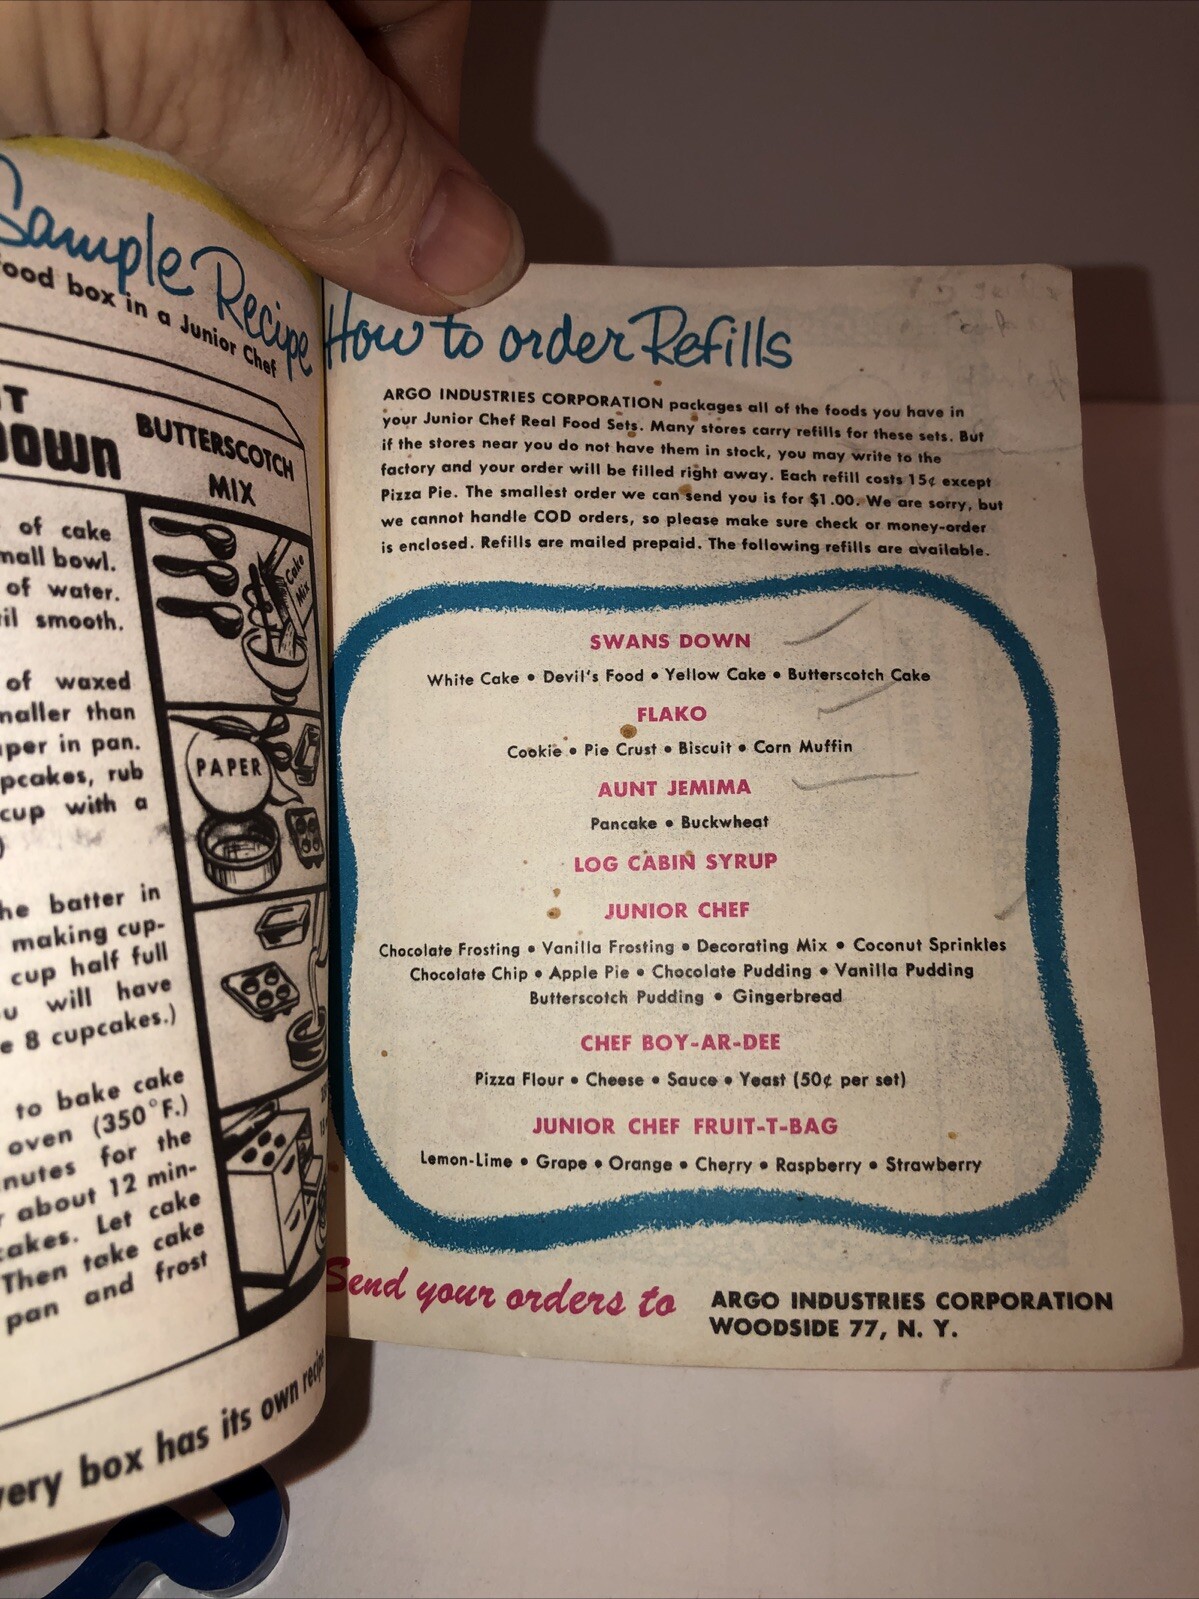 Sample Recipe
food box in a Junior Chef
BUTTERSCOTCH
MIX
of cake
small bowl.
of water.
smooth.
of waxed
smaller than
paper in pan.
cupcakes, rub
cup with a
)
the batter in
making cup-
cup half full
you will have
8 cupcakes.)
to bake cake
oven (350°F.)
minutes for the
about 12 min-
cakes. Let cake
Then take cake
pan and frost
Cake
Mix
PAPER
every box has its own recipe
How to order Refills
ARGO INDUSTRIES CORPORATION packages all of the foods you have in
your Junior Chef Real Food Sets. Many stores carry refills for these sets. But
if the stores near you do not have them in stock, you may write to the
factory and your order will be filled right away. Each refill costs 15¢ except
Pizza Pie. The smallest order we can send you is for $1.00. We are sorry, but
we cannot handle COD orders, so please make sure check or money-order
is enclosed. Refills are mailed prepaid. The following refills are available.
SWANS DOWN
White Cake • Devil's Food • Yellow Cake • Butterscotch Cake
FLAKO
Cookie • Pie Crust • Biscuit • Corn Muffin
AUNT JEMIMA
Pancake • Buckwheat
LOG CABIN SYRUP
JUNIOR CHEF
Chocolate Frosting • Vanilla Frosting • Decorating Mix • Coconut Sprinkles
Chocolate Chip • Apple Pie • Chocolate Pudding • Vanilla Pudding
Butterscotch Pudding • Gingerbread
CHEF BOY-AR-DEE
Pizza Flour • Cheese • Sauce • Yeast (50¢ per set)
JUNIOR CHEF FRUIT-T-BAG
Lemon-Lime • Grape • Orange • Cherry • Raspberry • Strawberry
Send your orders to
ARGO INDUSTRIES CORPORATION
WOODSIDE 77, N. Y.